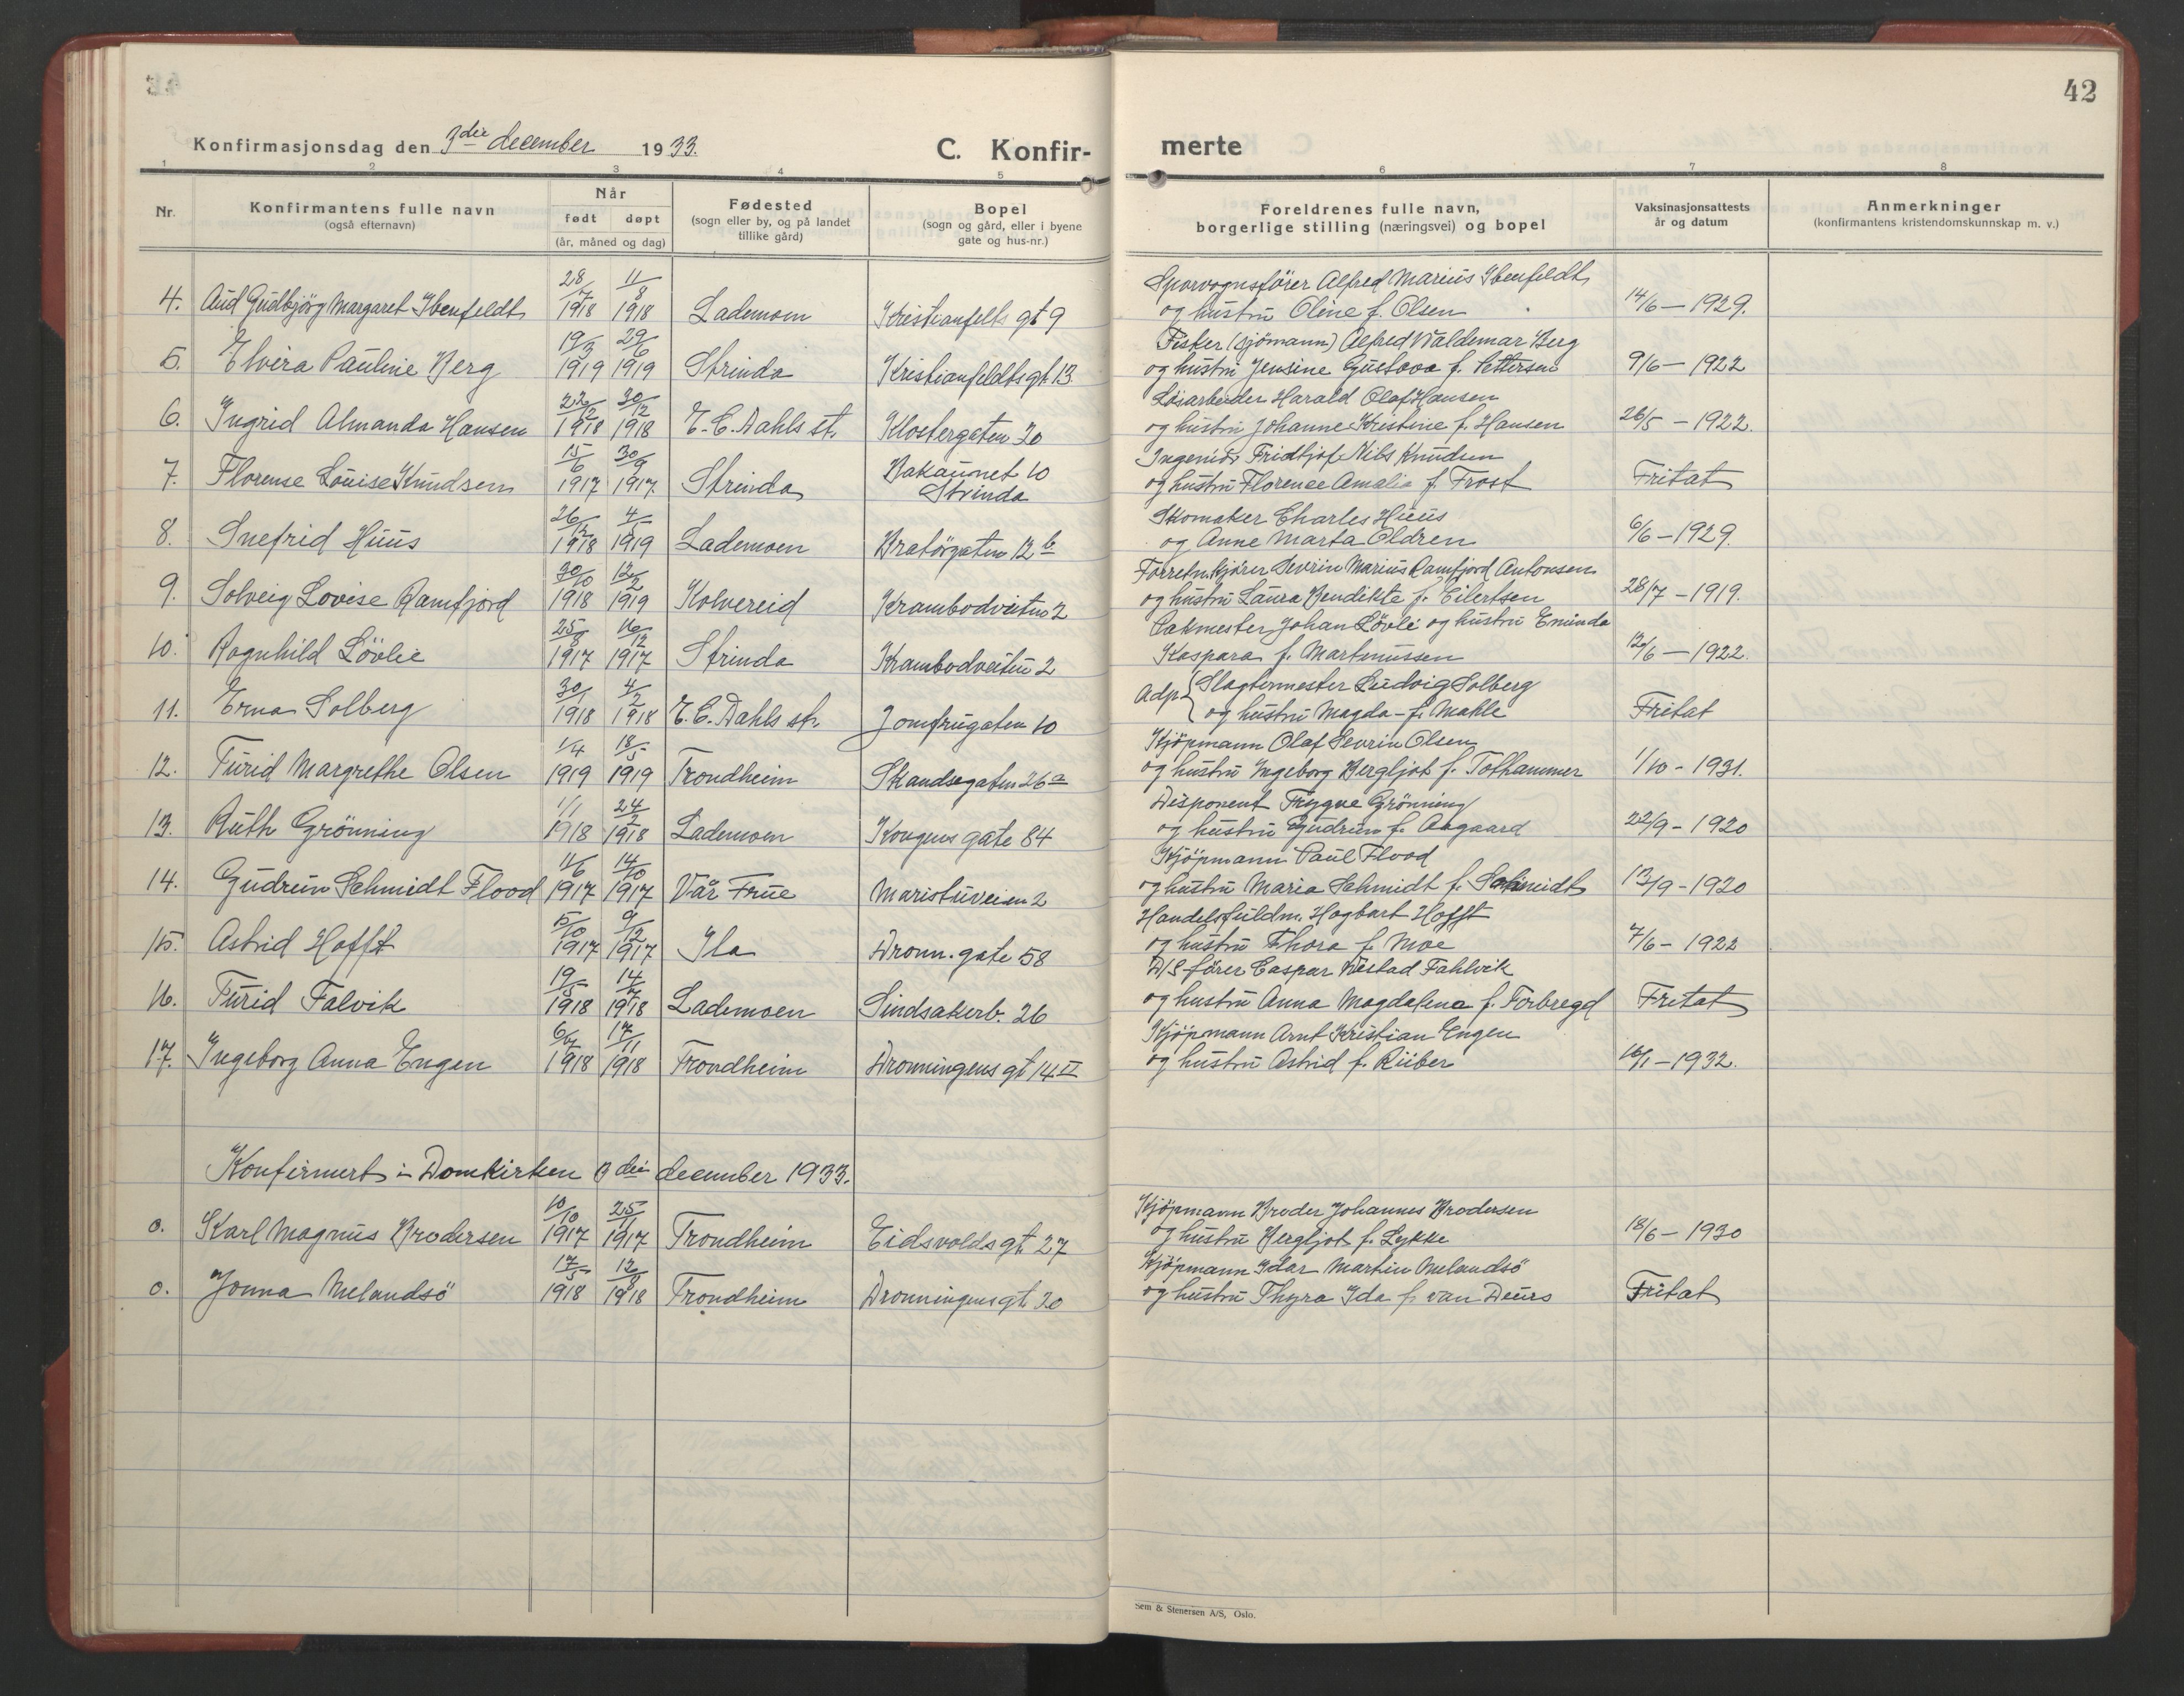 42
Konfirmasjonsdag den 3die december 1933.
C. Konfir-
merte
1 2 3 4 5 6 7 8
Nr.
Konfirmantens fulle navn
(også efternavn)
Når
født døpt
(år, måned og dag)
Fødested
(sogn eller by, og på landet
tillike gård)
Bopel
(sogn og gård, eller i byene
gate og hus-nr.)
Foreldrenes fulle navn,
borgerlige stilling (næringsvei) og bopel
Vaksinasjonsattests
år og datum
Anmerkninger
(konfirmantens kristendomskunnskap m. v.)
28/7 11/8 Sporvognsfører Alfred Marius Ibenfeldt
4. Aud Gudbjörg Margaret Ibenfeldt 1918 1918 Lademoen Kristianfeldts gt 9 og hustru Oline f. Olsen 14/6 – 1929.
19/3 29/6 Fisker (sjömann) Alfred Valdemar Berg
5. Elvira Pauline Berg 1919 1919 Strinda Kristianfeldts gt. 13 og hustru Jensine Gustava f. Pettersen 9/6 – 1922
22/12 30/12 Løsarbeider Harald Olaf Hansen
6. Ingrid Almanda Hansen 1918 1918 E. C. Dahls st. Klostergaten 20 og hustru Johanne Kristine f. Hansen 26/5 – 1922.
15/6 30/9 Bakaunet 10 Ingeniör Fridtjof Nils Knudsen
7. Florense Louise Knudsen 1917 1917 Strinda Strinda og hustru Florence Amalia f. Frost Fritat
26/12 4/5 Skomaker Charles Huus
8. Snefrid Huus 1918 1919 Lademoen Bratörgaten 12 b og Anne Marta Oldren 6/6 – 1929.
30/10 12/2 Forretn.kjörer Sevrin Marius Ramfjord Antonsen
9. Solveig Lovise Ramfjord 1918 1919 Kolvereid Krambodveiten 2 og hustru Laura Bendikte f. Eilertsen 28/7 – 1919.
25/8 16/12 Pakmester Johan Lövli og hustru Eminda
10. Ragnhild Lövlie 1917 1917 Strinda Krambodveiten 2 Kaspara f. Martinussen 12/6 – 1922.
30/1 4/2 Adp { Slagtermester Ludvig Solberg
11. Erna Solberg 1918 1918 E. C. Dahls st. Jomfrugaten 10 og hustru Magda f. Møkle Fritat
1/4 18/5 Kjöpmann Olaf Sevrin Olsen
12. Turid Margrethe Olsen 1919 1919 Trondheim Skandsegaten 26 a og hustru Ingeborg Bergljot f. Tofhammer 1/10 - 1931.
1/1 24/2 Disponent Trygve Grönning
13. Ruth Grönning 1918 1918 Lademoen Kongens gate 84 og hustru Gudrun f. Aagaard 22/9 - 1920
4/6 14/10 Kjöpmann Paul Flood
14. Gudrun Schmidt Flood 1917 1917 Vår Frue Maristuveien 2 og hustru Maria Schmidt f. Schmidt 13/9 - 1920
5/10 9/12 Handelsfuldm. Hagbart Hofft
15. Astrid Hofft 1917 1917 Ila Dronn. gate 58 og hustru Thora f. Moe 7/6 - 1922
19/5 14/7 D/S förer Caspar Vestad Fahlvik
16. Turid Falvik 1918 1918 Lademoen Lindsakerb. 26 og hustru Anna Magdalena f. Forbregd Fritat
6/7 17/11 Kjöpmann Arnt Kristian Engen
17. Ingeborg Anna Engen 1918 1918 Trondheim Dronningens gt 14 II og hustru Astrid f. Rüber 16/1 – 1932.
Konfirmert i Domkirken 3die december 1933.
10/10 25/11 Kjöpmann Broder Johannes Brodersen
0. Karl Magnus Brodersen 1917 1917 Trondheim Eidsvolds gt 27 og hustru Bergljot f. Lykke 18/6 – 1930
17/5 12/8 Kjöpmann Idar Martin Melandsö
0. Jonna Melandsö 1918 1918 Trondheim Dronningens gt. 20 og hustru Thyra Ida f. van Deurs Fritat
Sem & Stenersen A/S, Oslo.